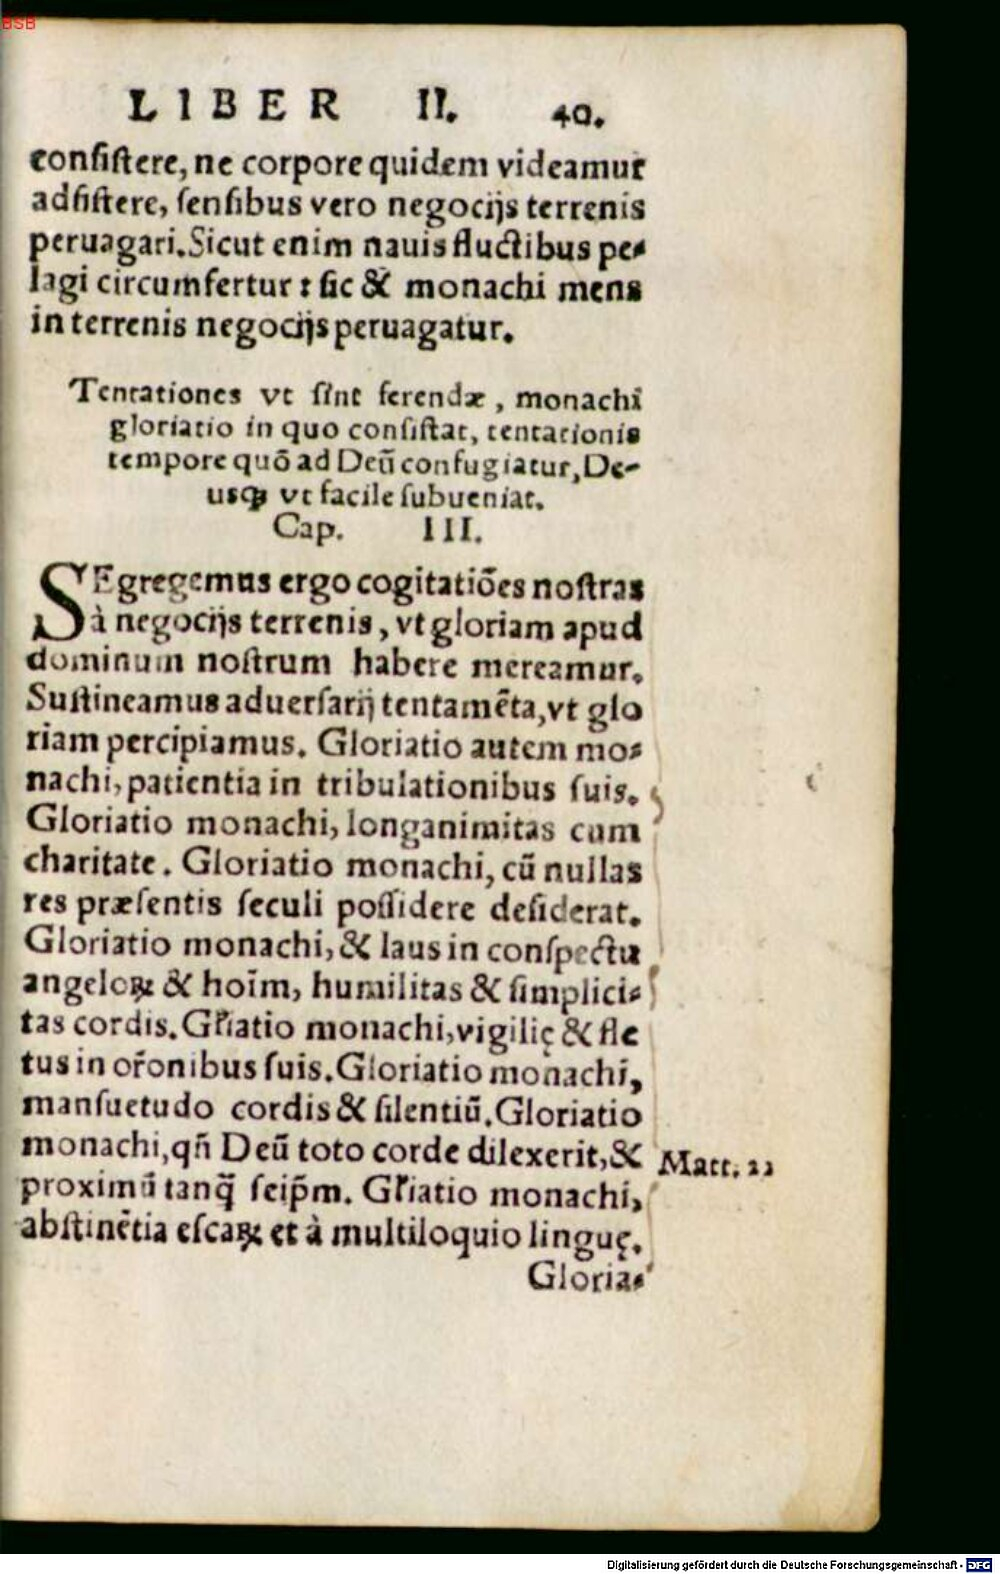 BSB
LIBER II. 40.
consistere, ne corpore quidem videamur
adsistere, sensibus vero negocijs terrenis
peruagari. Sicut enim nauis fluctibus pe-
lagi circumfertur: sic & monachi mens
in terrenis negocijs peruagatur.
Tentationes vt sint ferendæ, monachi
gloriatio in quo consistat, tentationis
tempore quõ ad Deũ confugiatur, De-
usqꝫ vt facile subueniat.
Cap. III.
SEgregemus ergo cogitatiões nostras
à negocijs terrenis, vt gloriam apud
dominum nostrum habere mereamur.
Sustineamus aduersarij tentamẽta, vt glo
riam percipiamus. Gloriatio autem mo-
nachi, patientia in tribulationibus suis.
Gloriatio monachi, longanimitas cum
charitate. Gloriatio monachi, cũ nullas
res præsentis seculi possidere desiderat.
Gloriatio monachi, & laus in conspectu
angeloꝝ & hoĩm, humilitas & simplici-
tas cordis. Gr̃iatio monachi, vigilię & fle
tus in or̃onibus suis. Gloriatio monachi,
mansuetudo cordis & silentiũ. Gloriatio
monachi, qñ Deũ toto corde dilexerit, &
proximũ tanq̃ seip̃m. Gr̃iatio monachi,
abstinẽtia escaꝝ et à multiloquio linguę.
Gloria-
Matt. 22
Digitalisierung gefördert durch die Deutsche Forschungsgemeinschaft - DFG